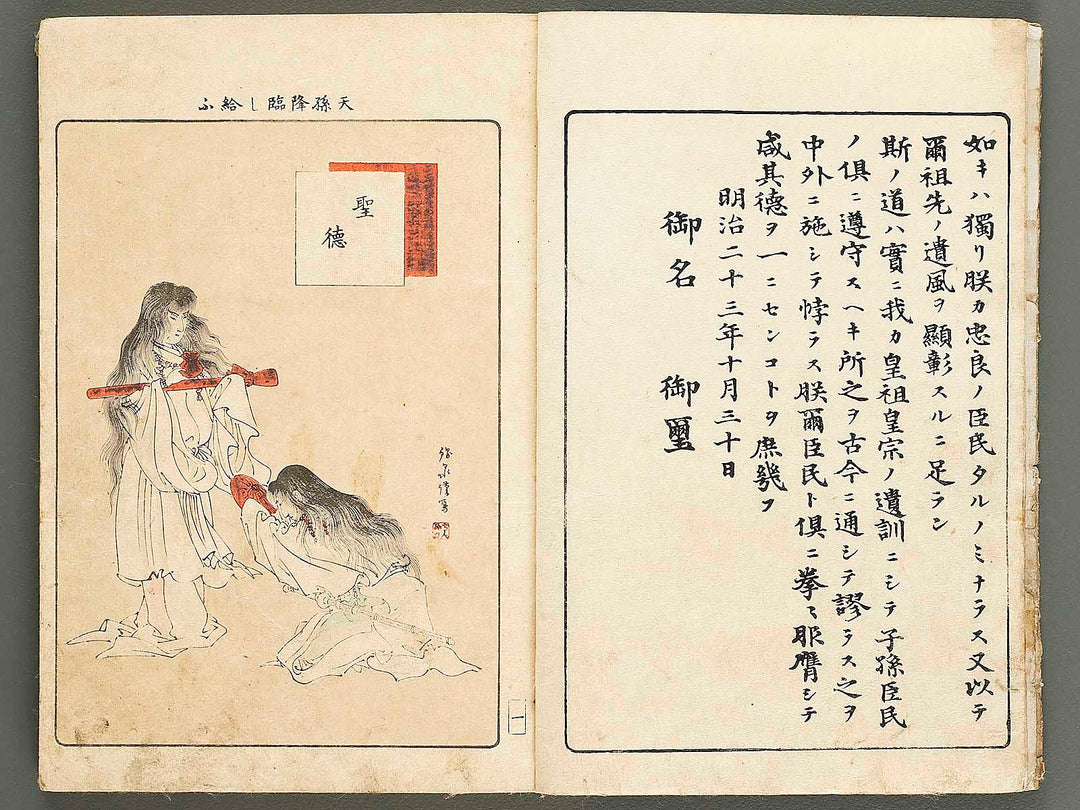 如キハ獨リ朕カ忠良ノ臣民タルノミナラス又以テ
爾祖先ノ遺風ヲ顯彰スルニ足ラン
斯ノ道ハ實ニ我カ皇祖皇宗ノ遺訓ニシテ子孫臣民
ノ倶ニ遵守スヘキ所之ヲ古今ニ通シテ謬ラス之ヲ
中外ニ施シテ悖ラス朕爾臣民ト倶ニ拳〻服膺シテ
咸其德ヲ一ニセンコトヲ庶幾フ
明治二十三年十月三十日
御名 御璽
天孫降臨し給ふ
聖
德
一